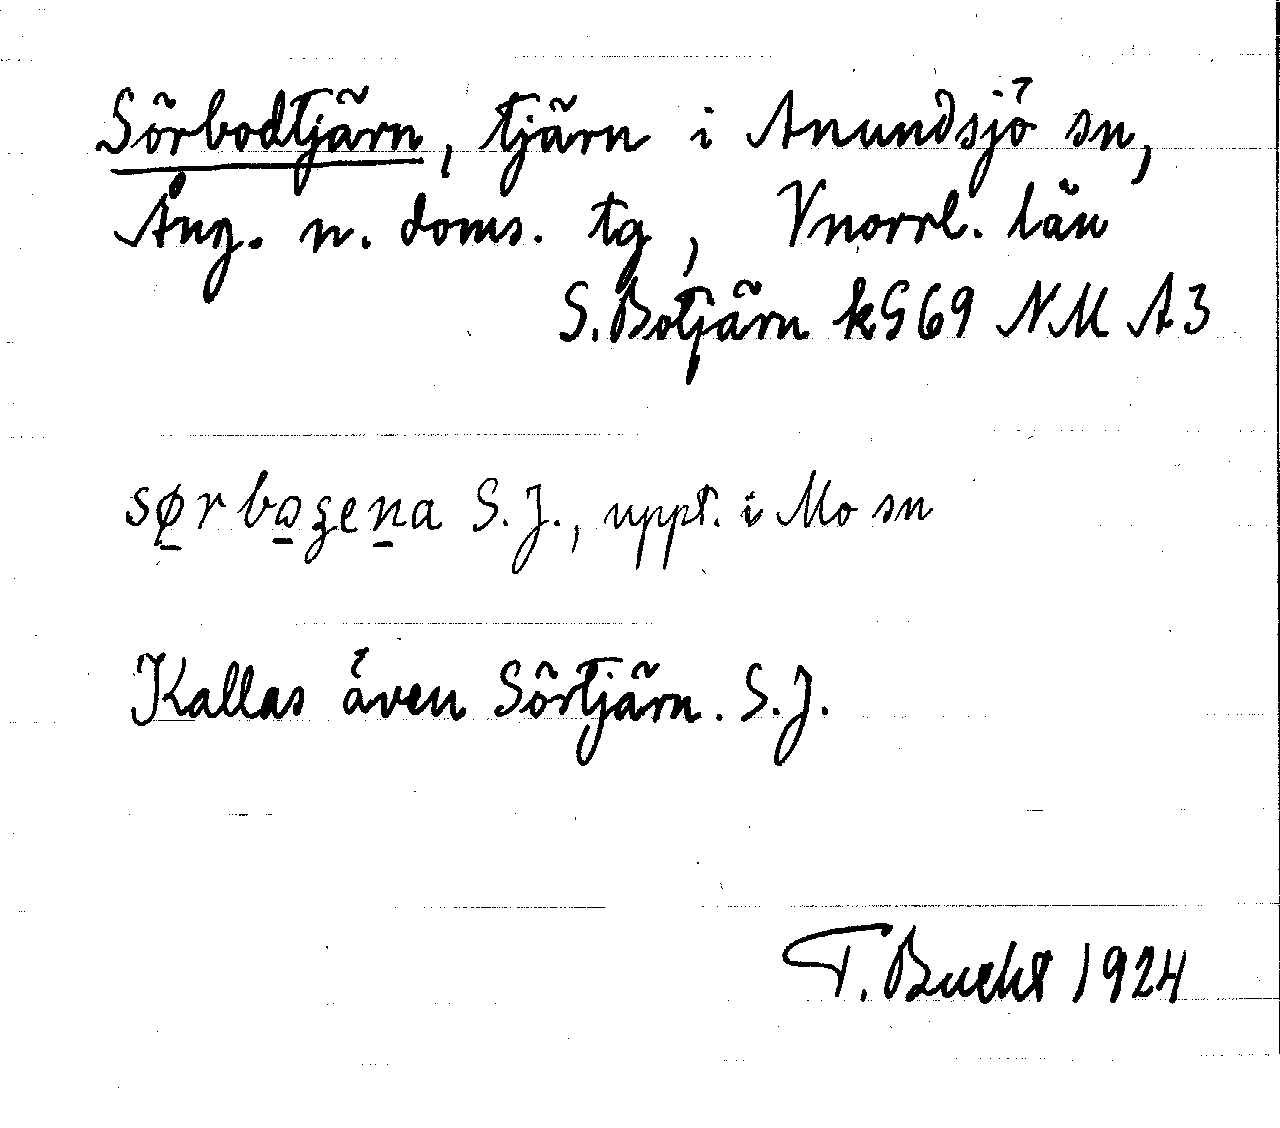 Sörbodtjärn, tjärn i Anundsjö sn,
Ång. n. doms. tg, Vnorrl. län
S. Botjärn kG69 NM A3
S. J., uppt. i Mo sn
Kallas även Sörtjärn. S. J.
T. Bucht 1924